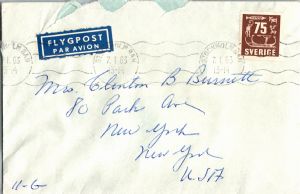 FLYGPOST
PAR AVION
75
SVERIGE
STOCKHOLM BAN
7.1.63
7.1.63
Mrs. Clinton B Burnett
80 Park Ave
New York
New York
USA